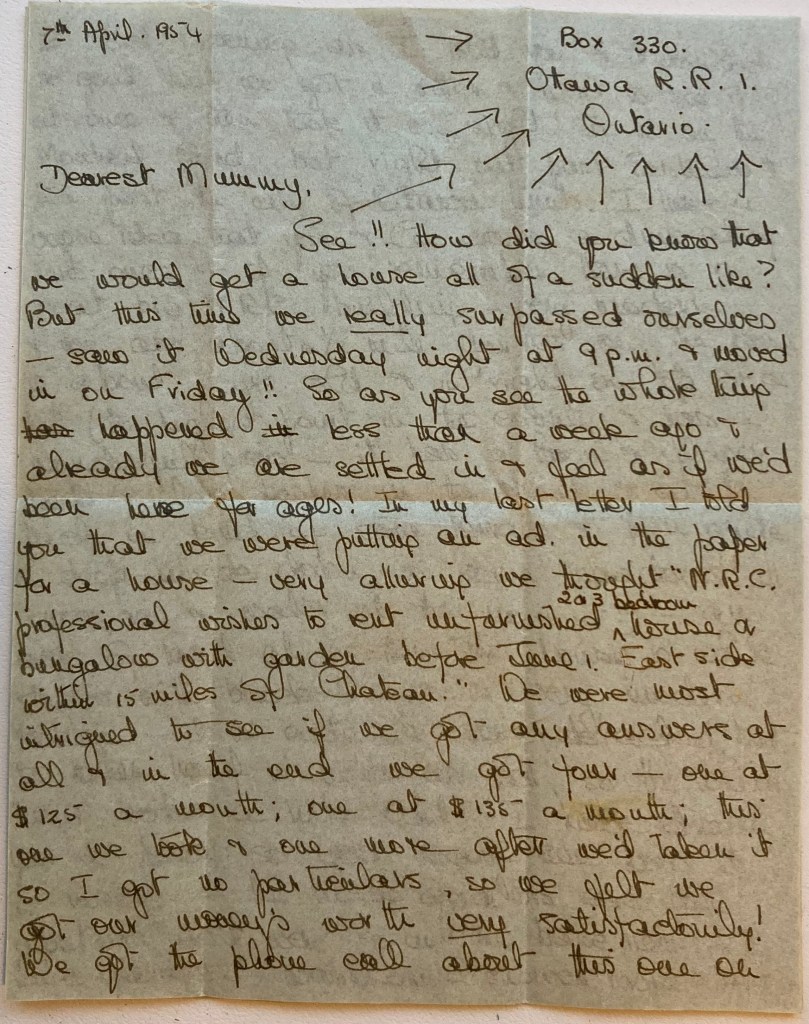 7th April. 1954
Box 330.
Ottawa R.R. 1.
Ontario.
Dearest Mummy,
See!! How did you know that
we would get a house all of a sudden like?
But this time we really surpassed ourselves
- saw it Wednesday night at 9 p.m. & moved
in on Friday!! So as you see the whole thing
has happened in less than a week ago &
already we are settled in & feel as if we'd
been here for ages! In my last letter I told
you that we were putting an ad. in the paper
for a house - very alluring we thought "N.R.C.
professional wishes to rent unfurnished 2 or 3 bedroom house or
bungalow with garden before June 1. East side
within 15 miles of Chateau." We were most
intrigued to see if we got any answers at
all & in the end we got four - one at
$125 a month; one at $135 a month; this
one we took & one more after we'd taken it
so I got no particulars, so we felt we
got our money's worth very satisfactorily!
We got the phone call about this one on